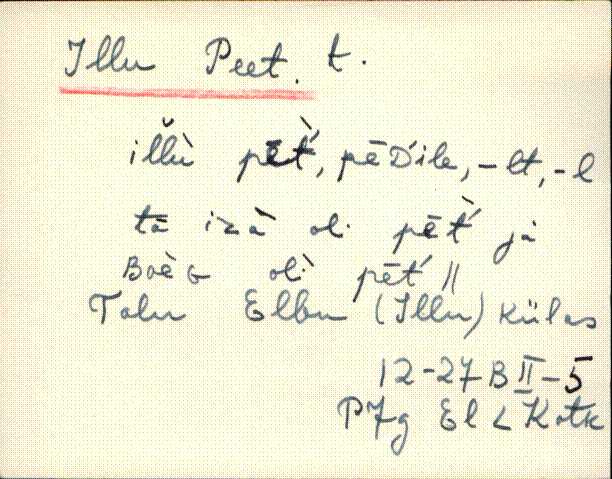 Illu Peet. t.
illù pēt̀', pēD'ile, -lt, -l
tā izà oli pēt̀' jà
Boèg olì pēt' ||
Talu Elbu (Illu) külas
12-27 B II-5
P7g El < Kotk